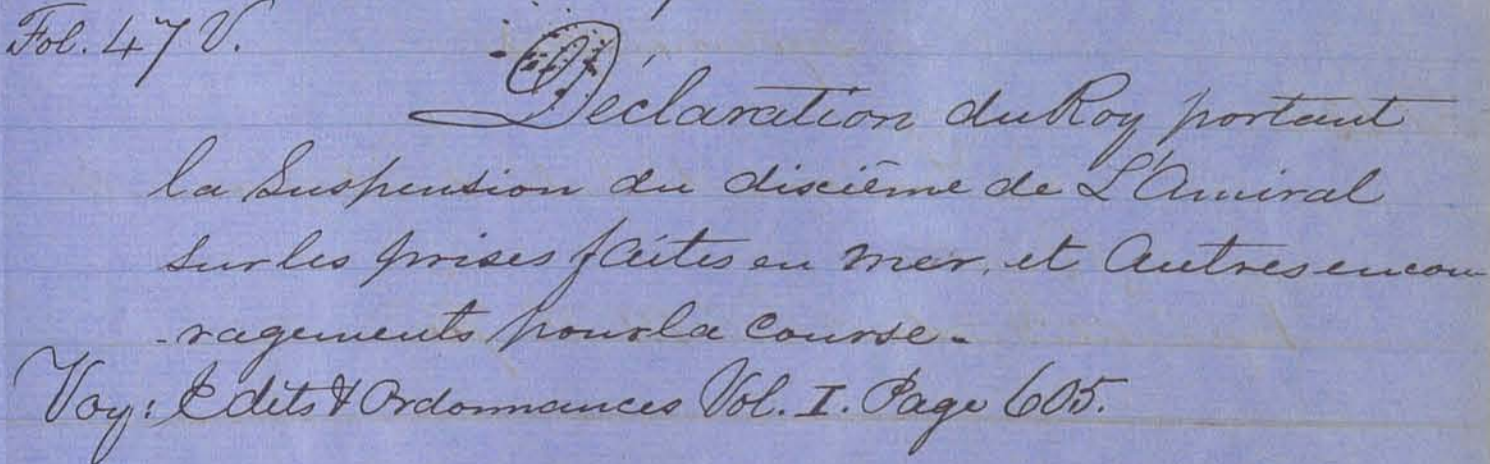 Fol. 47 V.
Déclaration du Roy portant
la Suspension du dixiême de L'Amiral
sur les prises faites en mer, et Autres encou
-ragements pour la Course.
Voy: Edits & Ordonnances Vol. I. Page 605.